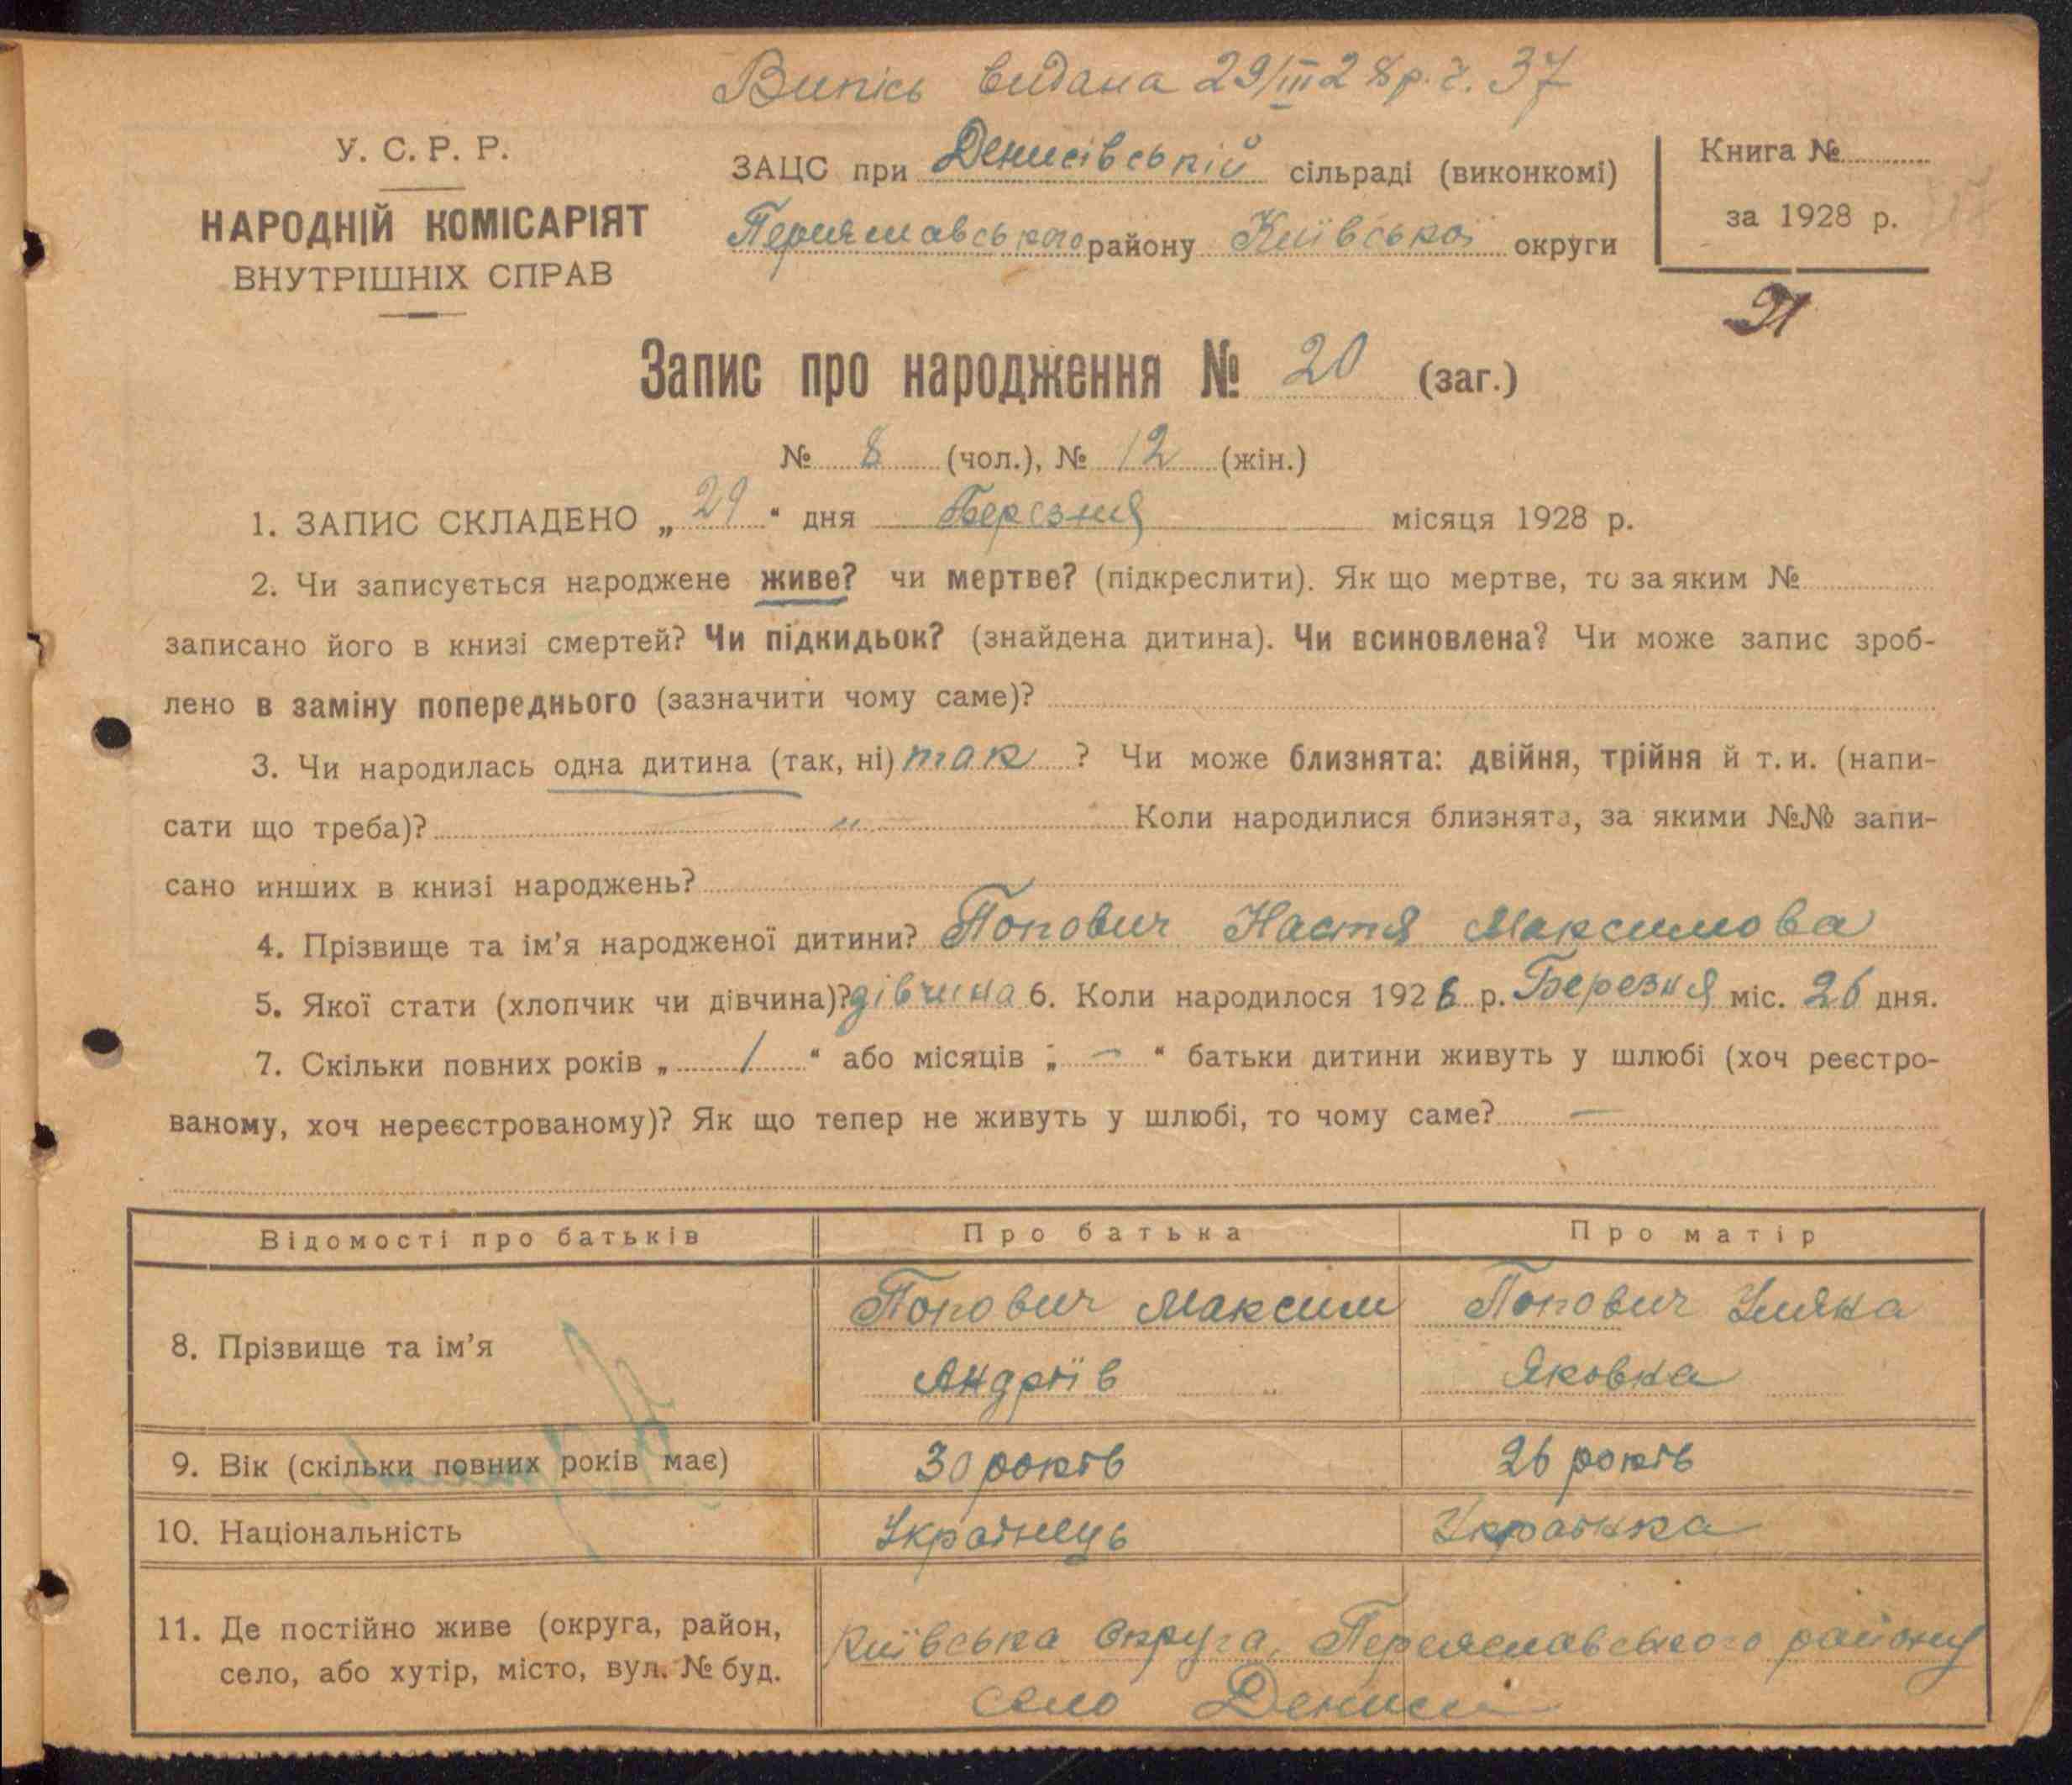 Випісь видана 29/III 28 р. ч. 37
У. С. Р. Р.
НАРОДНІЙ КОМІСАРІЯТ
ВНУТРІШНІХ СПРАВ
ЗАЦС при Денисівській сільраді (виконкомі)
Переяславського району Київської округи
Книга №
за 1928 р.
21
Запис про народження № 20 (заг.)
№ 8 (чол.), № 12 (жін.)
1. ЗАПИС СКЛАДЕНО „ 29 “ дня Березня місяця 1928 р.
2. Чи записується народжене живе? чи мертве? (підкреслити). Як що мертве, то за яким №
записано його в книзі смертей? Чи підкидьок? (знайдена дитина). Чи всиновлена? Чи може запис зроб-
лено в заміну попереднього (зазначити чому саме)?
3. Чи народилась одна дитина (так, ні) так ? Чи може близнята: двійня, трійня й т. и. (напи-
сати що треба)? „ Коли народилися близнята, за якими №№ запи-
сано инших в книзі народжень?
4. Прізвище та ім’я народженої дитини? Попович Настя Максимова
5. Якої стати (хлопчик чи дівчина)? дівчина 6. Коли народилося 1928 р. Березня міс. 26 дня.
7. Скільки повних років „ 1 “ або місяців „ – “ батьки дитини живуть у шлюбі (хоч реєстро-
ваному, хоч нереєстрованому)? Як що тепер не живуть у шлюбі, то чому саме? —
Відомості про батьків Про батька Про матір
8. Прізвище та ім’я
Попович Максим
Андріїв
Попович Уляна
Яковна
9. Вік (скільки повних років має) 30 років 26 років
10. Національність Українець Українка
11. Де постійно живе (округа, район,
село, або хутір, місто, вул. № буд.
Київська округа, Переяславського району
село Дениси